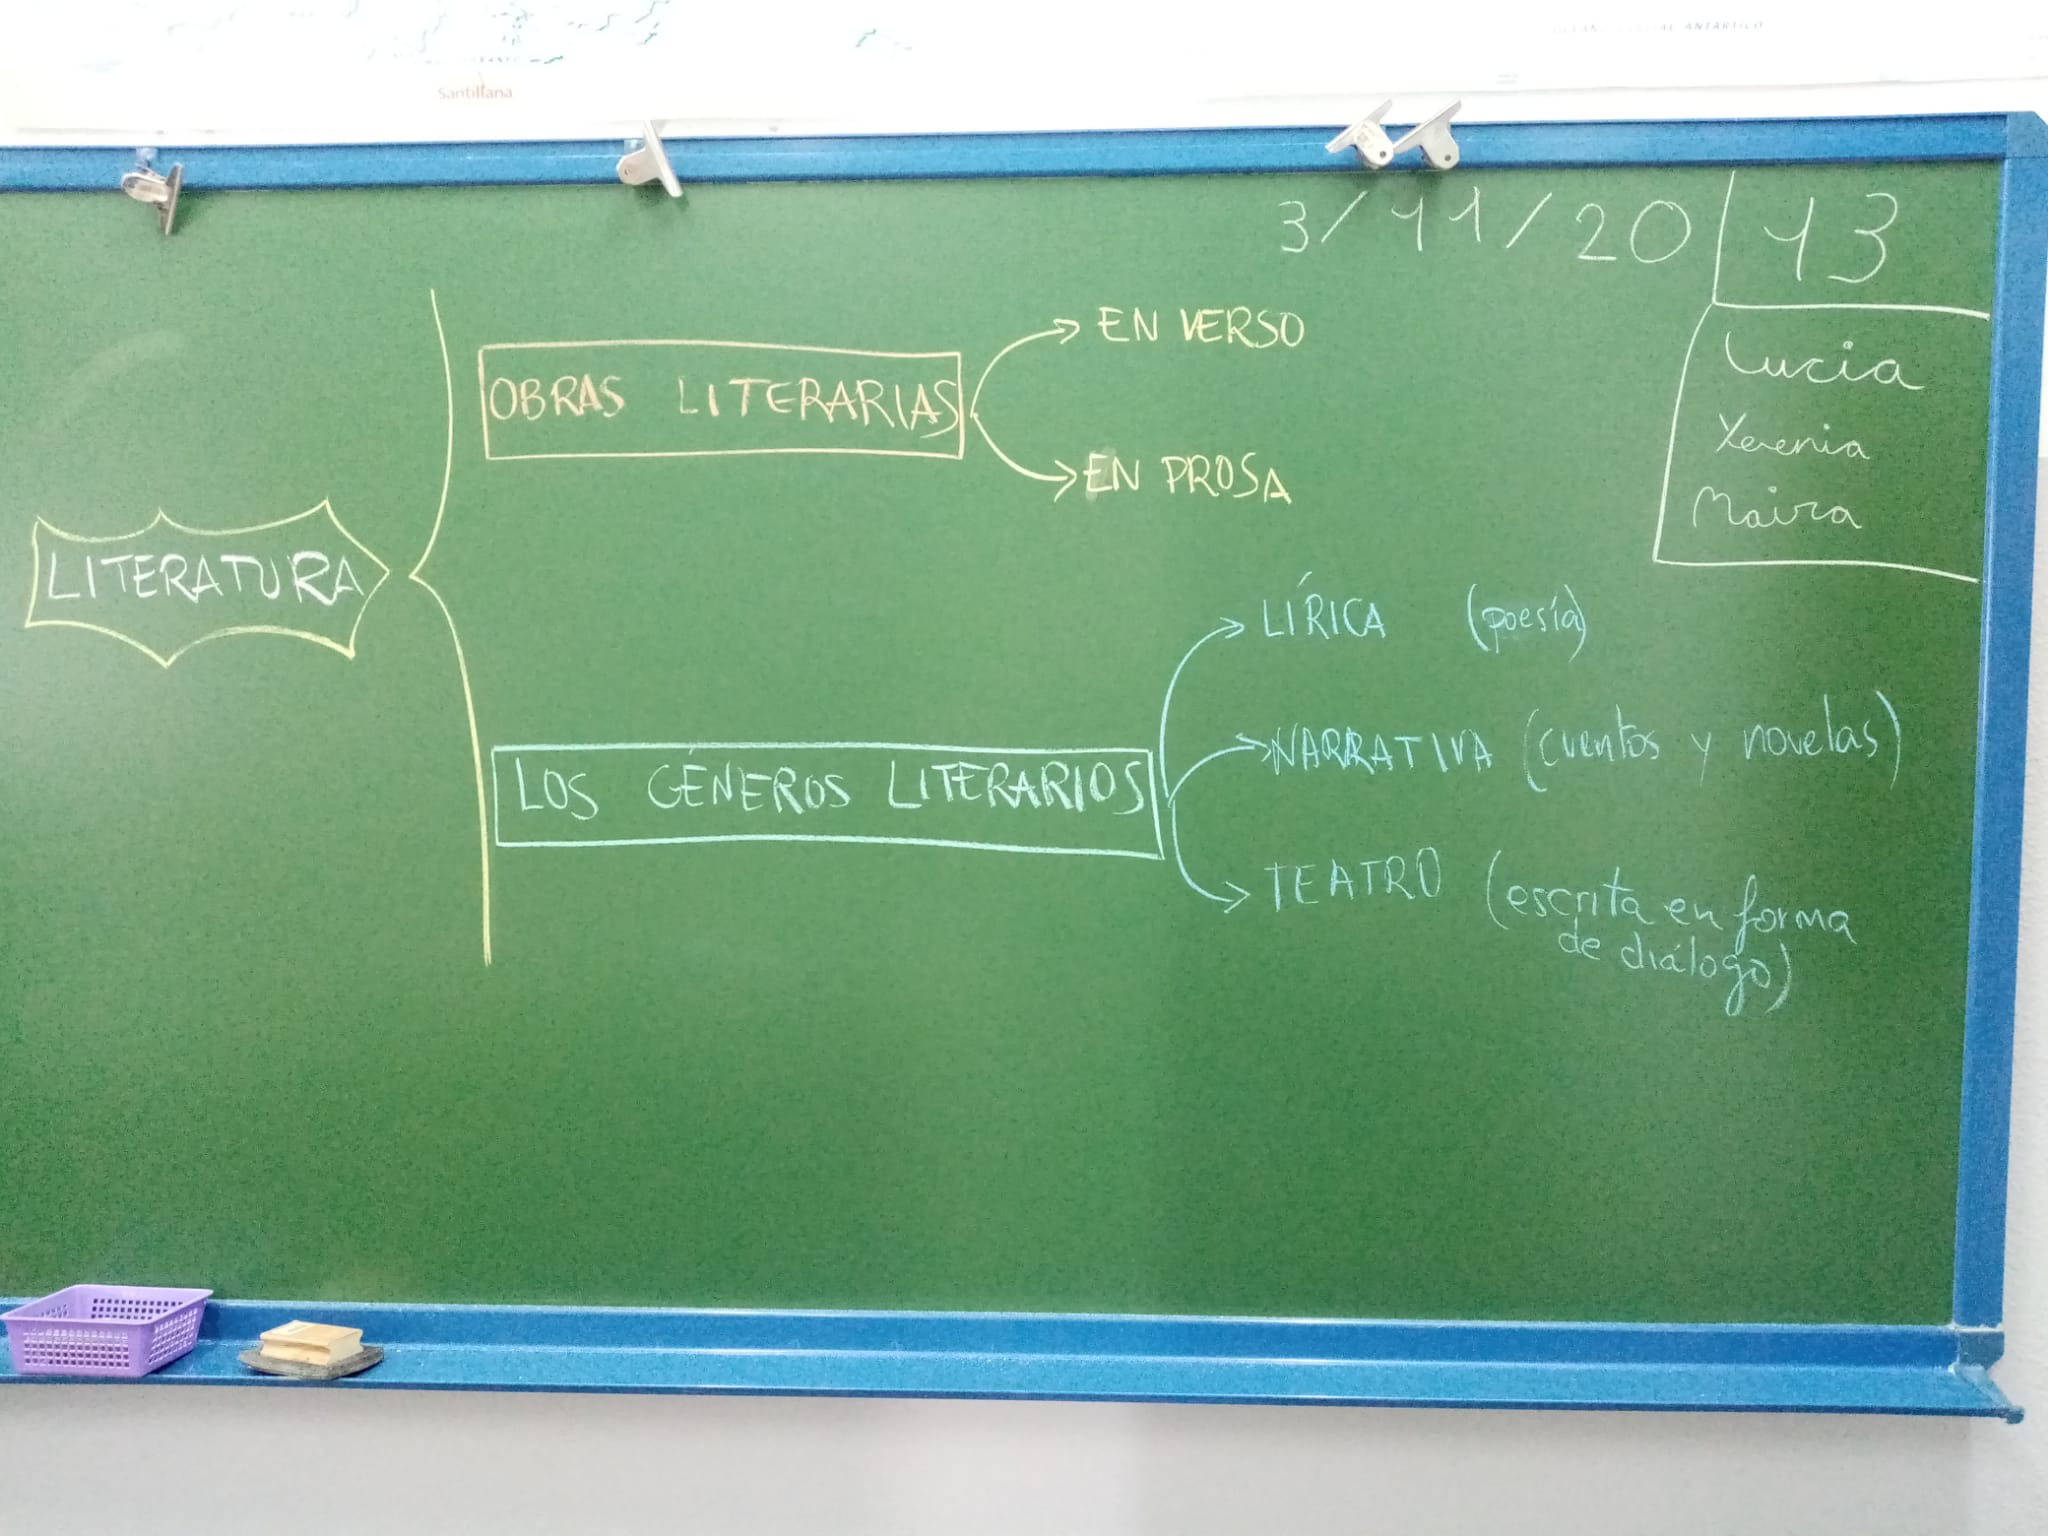 Santillana
ANTÁRTICO
3/11/20
13
Lucia
Maira
LITERATURA
OBRAS LITERARIAS
EN VERSO
EN PROSA
LOS GÉNEROS LITERARIOS
LÍRICA (poesía)
NARRATIVA (cuentos y novelas)
TEATRO (escrita en forma
de diálogo)